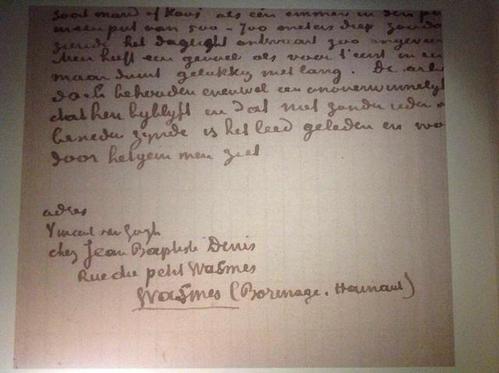 soort mand of kooi als een emmer in den pu
meenput van 500-700 meters diep zoodat
ziende het daglicht ontwaart zoo ongeveer
Men heeft een gevoel als voor 't eerst in een
maar duurt gelukkig niet lang. De arb
doch behouden evenwel een onoverwinnelyk
dat hen byblyft en dat niet zonder reden o
beneden zynde is het leed geleden en wo
door hetgeen men ziet
adres
Vincent van Gogh
chez Jean Baptiste Denis
Rue du petit Wasmes
Wasmes (Borinage. Hainaut)